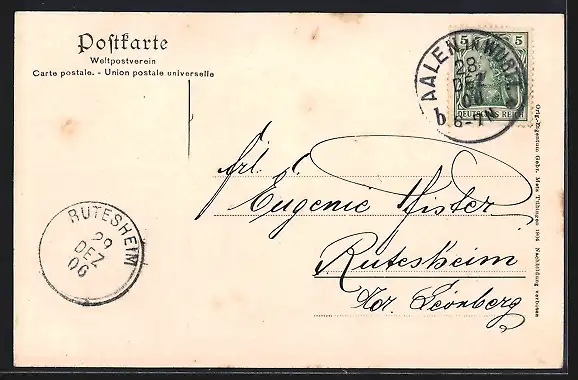 Postkarte
Weltpostverein
Carte postale. - Union postale universelle
AALEN (WÜRTT)
28
DEZ
06
b 8-9 N
5 5
DEUTSCHES REICH
Frl.
Eugenie Pfister
Rutesheim
O/A. Leonberg
RUTESHEIM
29
DEZ
06
Orig.-Eigentum Gebr. Metz Tübingen 1904 Nachbildung verboten